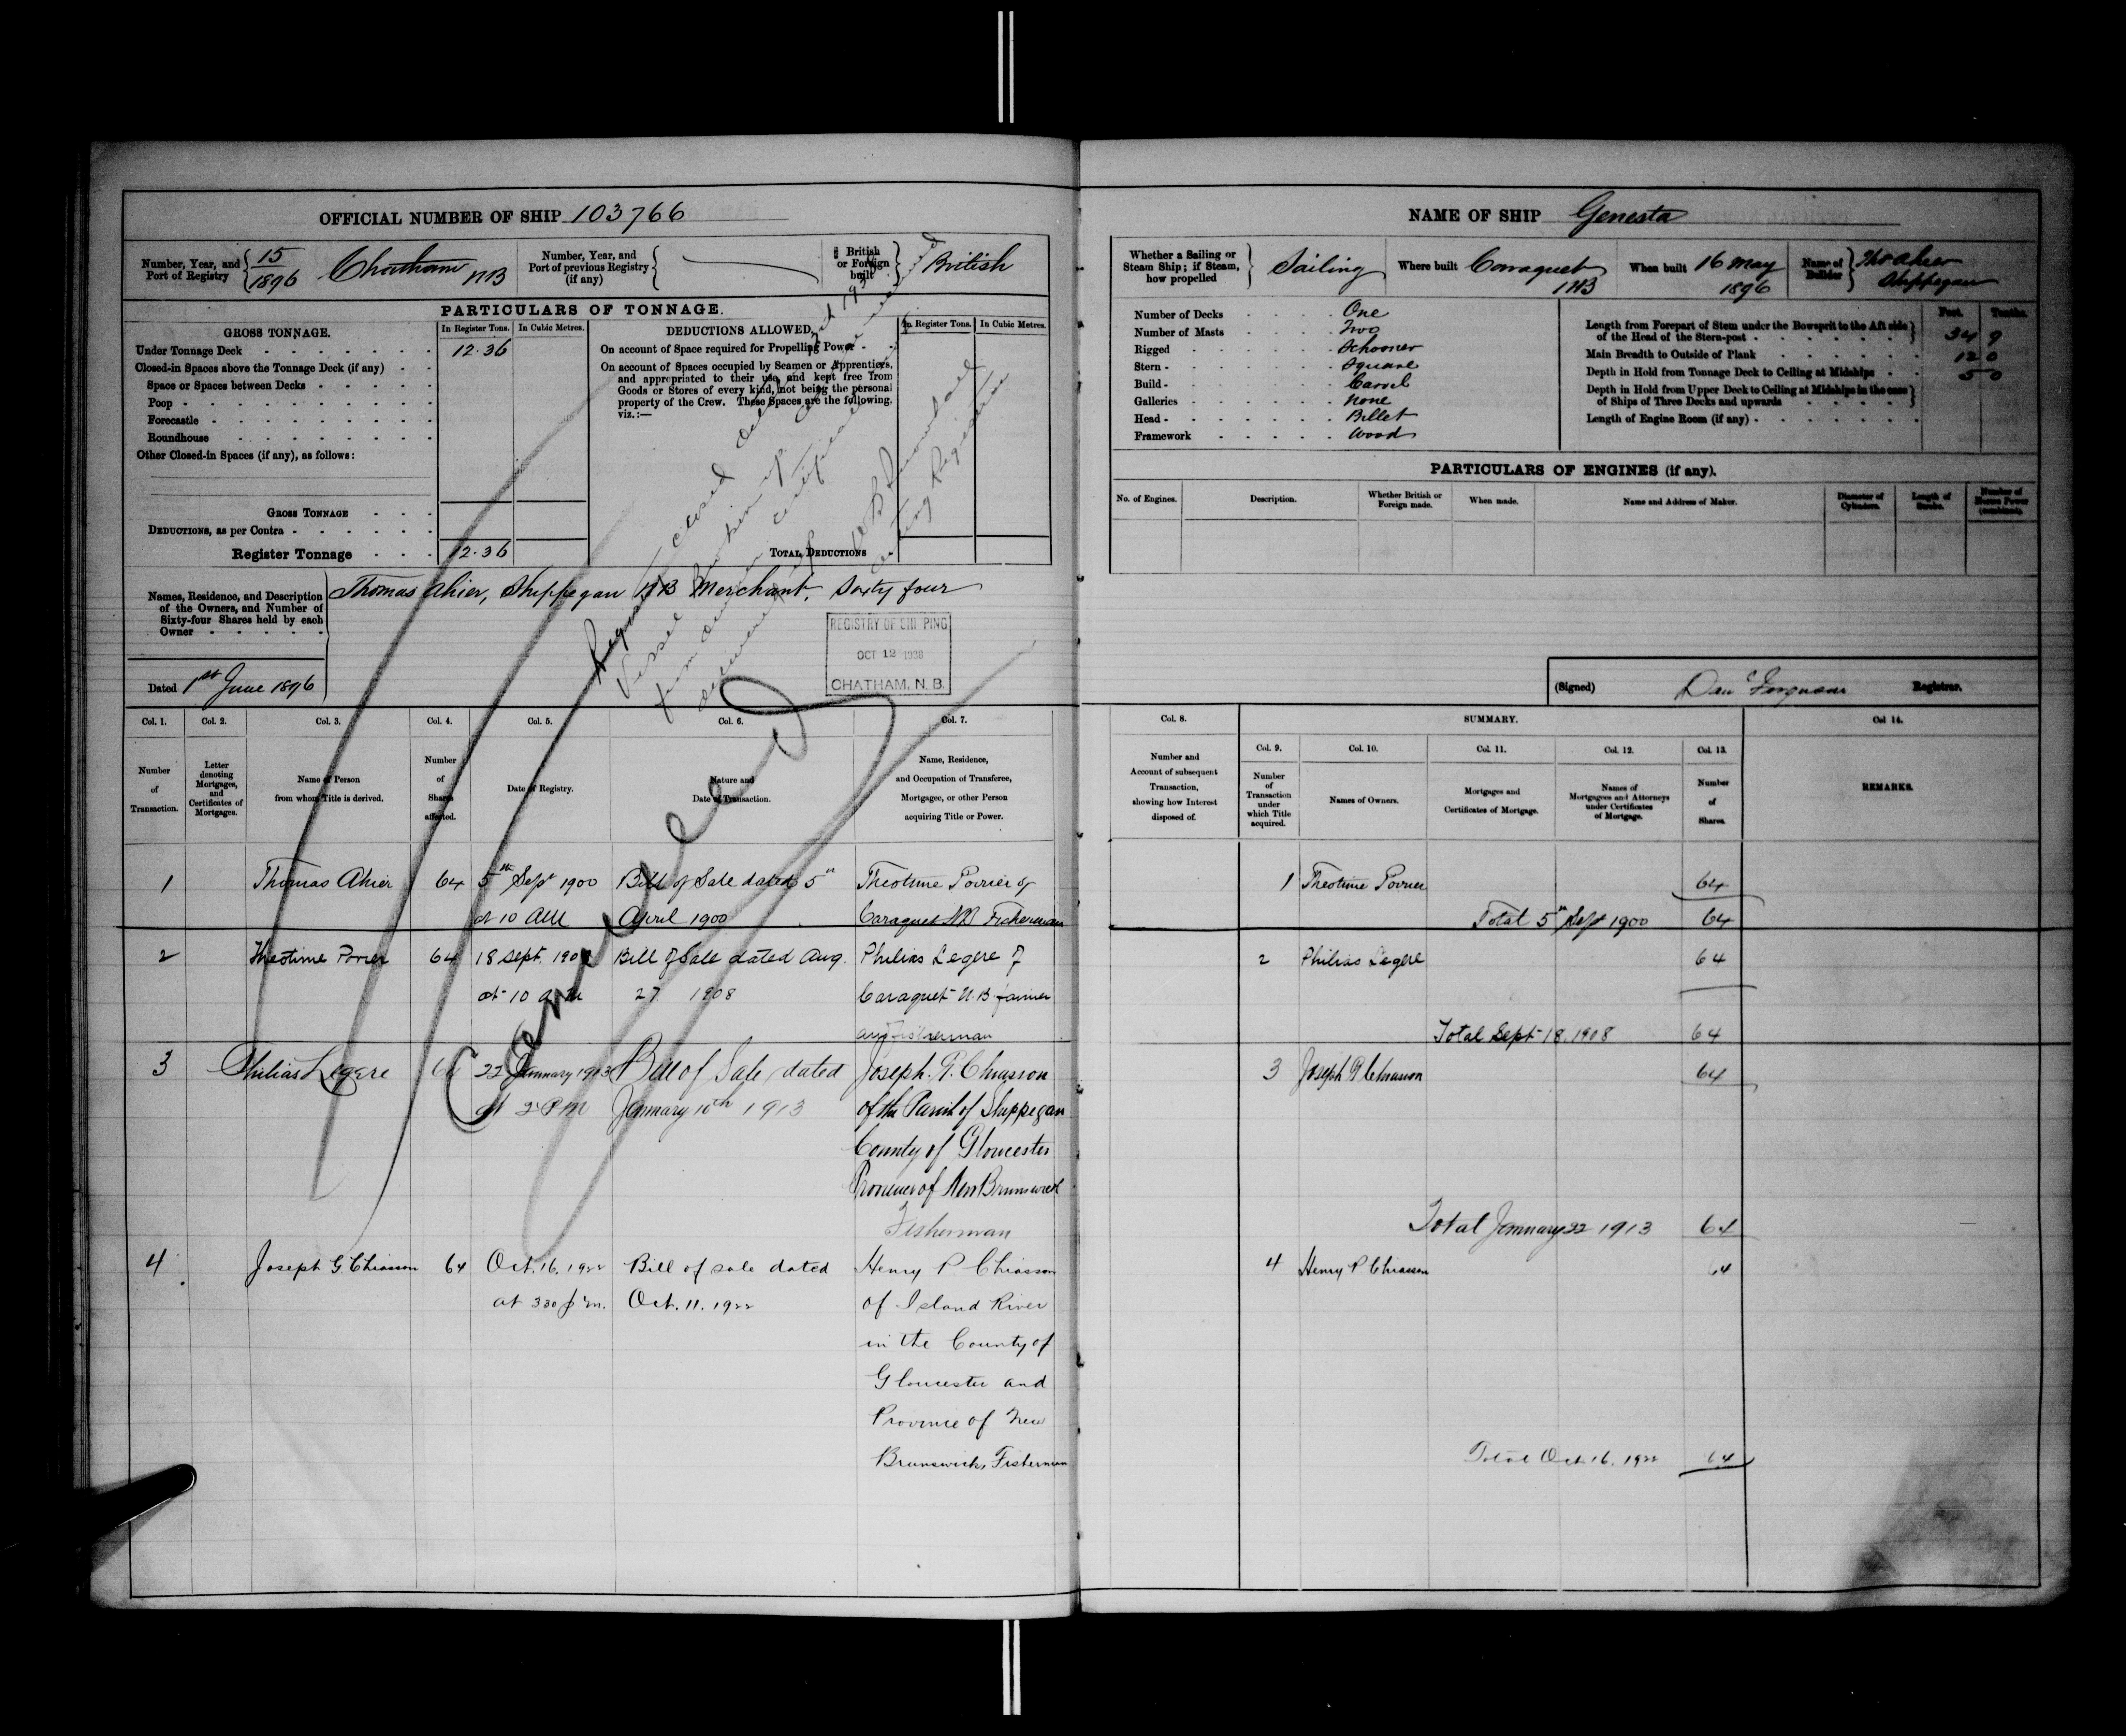 OFFICIAL NUMBER OF SHIP 103766
Number, Year, and Port of Registry { 15/1896 Chatham NB
Number, Year, and Port of previous Registry (if any) {
British or Foreign built } British
PARTICULARS OF TONNAGE.
GROSS TONNAGE. In Register Tons. In Cubic Metres.
Under Tonnage Deck 12.36
Closed-in Spaces above the Tonnage Deck (if any)
Space or Spaces between Decks
Poop
Forecastle
Roundhouse
Other Closed-in Spaces (if any), as follows:
GROSS TONNAGE
DEDUCTIONS, as per Contra
Register Tonnage 12.36
DEDUCTIONS ALLOWED. In Register Tons. In Cubic Metres.
On account of Space required for Propelling Power
On account of Spaces occupied by Seamen or Apprentices,
and appropriated to their use, and kept free from
Goods or Stores of every kind, not being the personal
property of the Crew. These Spaces are the following,
viz.:—
TOTAL DEDUCTIONS
Closed
Vessel
certificate
Acting Registrar
Names, Residence, and Description of the Owners, and Number of Sixty-four Shares held by each Owner
Thomas Ahier, Shippegan NB Merchant, Sixty four
REGISTRY OF SHIPPING
OCT 12 1938
CHATHAM, N. B.
Dated 1st June 1896
Cancelled
Col. 1. Col. 2. Col. 3. Col. 4. Col. 5. Col. 6. Col. 7.
Number of Transaction.
Letter denoting Mortgages, and Certificates of Mortgages.
Name of Person from whom Title is derived.
Number of Shares affected.
Date of Registry.
Nature and Date of Transaction.
Name, Residence, and Occupation of Transferee, Mortgagee, or other Person acquiring Title or Power.
1 Thomas Ahier 64 5th Sept 1900 Bill of Sale dated 5th Theotime Poirier of
at 10 AM April 1900 Caraquet NB Fisherman
2 Theotime Poirier 64 18 Sept. 1908 Bill of Sale dated Aug. Philias Legere of
at 10 a m 27 1908 Caraquet N.B. farmer
and fisherman
3 Philias Legere 64 22 January 1913 Bill of Sale dated Joseph. G. Chiasson
at 2 PM January 10th 1913 of the Parish of Shippegan
County of Gloucester
Province of New Brunswick
Fisherman
4 Joseph G Chiasson 64 Oct. 16. 1922 Bill of sale dated Henry P. Chiasson
at 330 p.m. Oct. 11. 1922 of Island River
in the County of
Gloucester and
Province of New
Brunswick, Fisherman
NAME OF SHIP Genesta
Whether a Sailing or Steam Ship; if Steam, how propelled } Sailing
Where built Caraquet NB
When built 16 May 1896
Name of Builder } Thos Ahier Shippegan
Number of Decks One
Number of Masts Two
Rigged Schooner
Stern Square
Build Carvel
Galleries None
Head Billet
Framework Wood
Feet. Tenths.
Length from Forepart of Stem under the Bowsprit to the Aft side of the Head of the Stern-post 34 9
Main Breadth to Outside of Plank 12 0
Depth in Hold from Tonnage Deck to Ceiling at Midships 5 0
Depth in Hold from Upper Deck to Ceiling at Midships in the case of Ships of Three Decks and upwards
Length of Engine Room (if any)
PARTICULARS OF ENGINES (if any).
No. of Engines. Description. Whether British or Foreign made. When made. Name and Address of Maker. Diameter of Cylinders. Length of Stroke. Number of Horses Power (combined).
(Signed) Danl Ferguson Registrar.
Col. 8. SUMMARY. Col. 14.
Col. 9. Col. 10. Col. 11. Col. 12. Col. 13.
Number and Account of subsequent Transaction, showing how Interest disposed of.
Number of Transaction under which Title acquired.
Names of Owners.
Mortgages and Certificates of Mortgage.
Names of Mortgagees and Attorneys under Certificates of Mortgage.
Number of Shares.
REMARKS.
1 Theotime Poirier 64
Total 5th Sept 1900 64
2 Philias Legere 64
Total Sept 18. 1908 64
3 Joseph G Chiasson 64
Total January 22 1913 64
4 Henry P Chiasson 64
Total Oct. 16. 1922 64